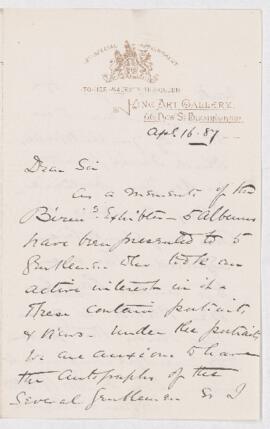 BY SPECIAL APPOINTMENT
TO HER MAJESTY THE QUEEN
KING ART GALLERY
66 New St Birmingham
Apl. 16. 87
Dear Sir
as a memento of the
Birm. Exhibtn 5 albums
have been presented to 5
Gentlemen who took an
active interest in it
These contain portraits
& views. Under the portraits
we are anxious to have
the Autographs of the
several Gentlemen & I